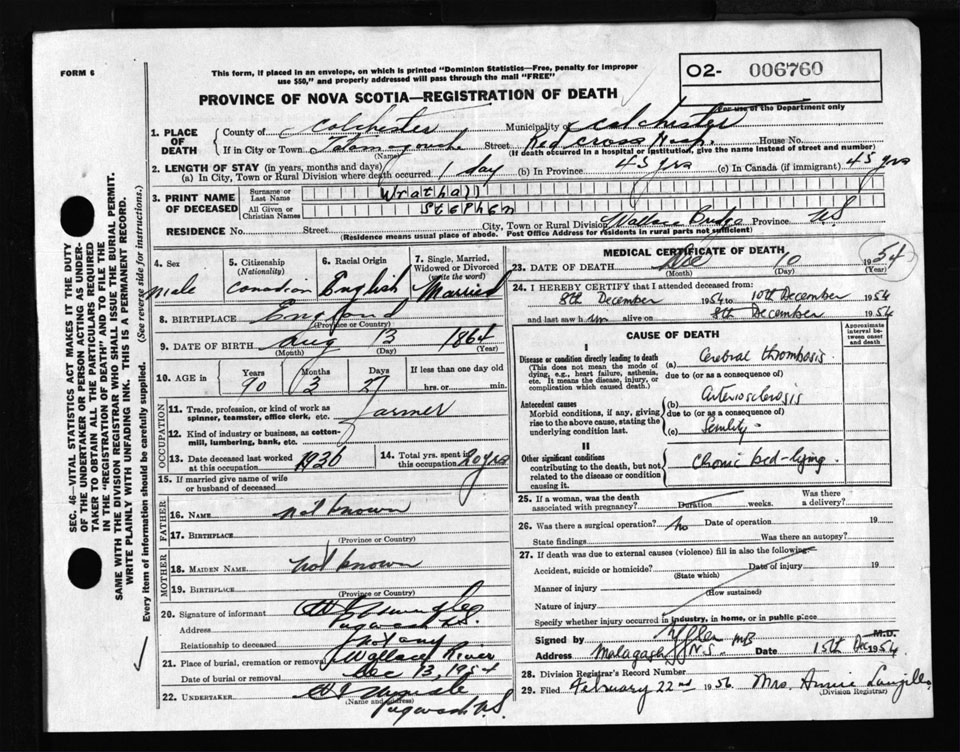 FORM 6
This form, if placed in an envelope, on which is printed "Dominion Statistics—Free, penalty for improper
use $50," and properly addressed will pass through the mail "FREE"
O2- 006760
For use of the Department only
PROVINCE OF NOVA SCOTIA—REGISTRATION OF DEATH
1. PLACE OF DEATH County of Colchester Municipality of Colchester
If in City or Town Tatamagouche (Name) Street Red Cross Hosp. House No.
(If death occurred in a hospital or institution, give the name instead of street and number)
2. LENGTH OF STAY (in years, months and days)
(a) In City, Town or Rural Division where death occurred 1 day (b) In Province 45 yrs (c) In Canada (if immigrant) 45 yrs
3. PRINT NAME OF DECEASED Surname or Last Name Wrathall
All Given or Christian Names Stephen
RESIDENCE No. Street City, Town or Rural Division Wallace Bridge Province NS
(Residence means usual place of abode. Post Office Address for residents in rural parts not sufficient)
4. Sex Male
5. Citizenship (Nationality) Canadian
6. Racial Origin English
7. Single, Married, Widowed or Divorced (write the word) Married
8. BIRTHPLACE England
(Province or Country)
9. DATE OF BIRTH Aug 13 1864
(Month) (Day) (Year)
10. AGE in Years 90 Months 3 Days 27 If less than one day old
hrs. or min.
OCCUPATION
11. Trade, profession, or kind of work as spinner, teamster, office clerk, etc. farmer
12. Kind of industry or business, as cotton-mill, lumbering, bank, etc.
13. Date deceased last worked at this occupation 1936 14. Total yrs. spent in this occupation 20 yrs
15. If married give name of wife or husband of deceased
FATHER
16. NAME not known
17. BIRTHPLACE
(Province or Country)
MOTHER
18. MAIDEN NAME not known
19. BIRTHPLACE
(Province or Country)
20. Signature of informant
Address Pugwash N.S.
Relationship to deceased not any
21. Place of burial, cremation or removal Wallace River
Date of burial or removal Dec 13, 1954
22. UNDERTAKER
(Name and address)
Pugwash N.S
MEDICAL CERTIFICATE OF DEATH
23. DATE OF DEATH Dec 10 1954
(Month) (Day) (Year)
24. I HEREBY CERTIFY that I attended deceased from:
8th December 1954 to 10th December 1954
and last saw h im alive on 8th December 1954
CAUSE OF DEATH
Approximate interval between onset and death
I
Disease or condition directly leading to death
(This does not mean the mode of dying, e.g., heart failure, asthenia, etc. It means the disease, injury, or complication which caused death.)
(a) Cerebral thrombosis
due to (or as a consequence of)
Antecedent causes
Morbid conditions, if any, giving rise to the above cause, stating the underlying condition last.
(b) Arteriosclerosis
due to (or as a consequence of)
(c) Senility
II
Other significant conditions
contributing to the death, but not related to the disease or condition causing it.
Chronic bed-lying
25. If a woman, was the death associated with pregnancy? Duration weeks. Was there a delivery?
26. Was there a surgical operation? no Date of operation 19
State findings Was there an autopsy?
27. If death was due to external causes (violence) fill in also the following:
Accident, suicide or homicide? Date of injury 19
(State which)
Manner of injury
(How sustained)
Nature of injury
Specify whether injury occurred in industry, in home, or in public place
Signed by MB M.D.
Address Malagash N.S. Date 15th Dec 1954
28. Division Registrar's Record Number
29. Filed February 22nd 1956 Mrs. Annie Langille
(Division Registrar)
SEC. 46—VITAL STATISTICS ACT MAKES IT THE DUTY
OF THE UNDERTAKER OR PERSON ACTING AS UNDER-
TAKER TO OBTAIN ALL THE PARTICULARS REQUIRED
IN THE "REGISTRATION OF DEATH" AND TO FILE THE
SAME WITH THE DIVISION REGISTRAR WHO SHALL ISSUE THE BURIAL PERMIT.
WRITE PLAINLY WITH UNFADING INK. THIS IS A PERMANENT RECORD.
Every item of information should be carefully supplied. (See reverse side for instructions.)